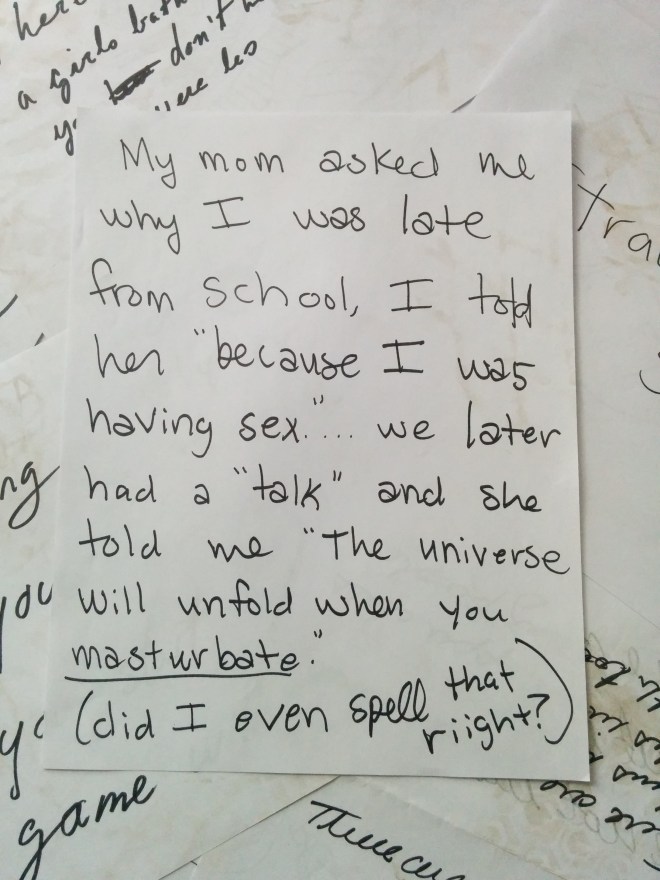 a girls
don't
My mom asked me
why I was late
from school, I told
her "because I was
having sex."... we later
had a "talk" and she
told me "The universe
will unfold when you
masturbate."
(did I even spell that
riight?)
game